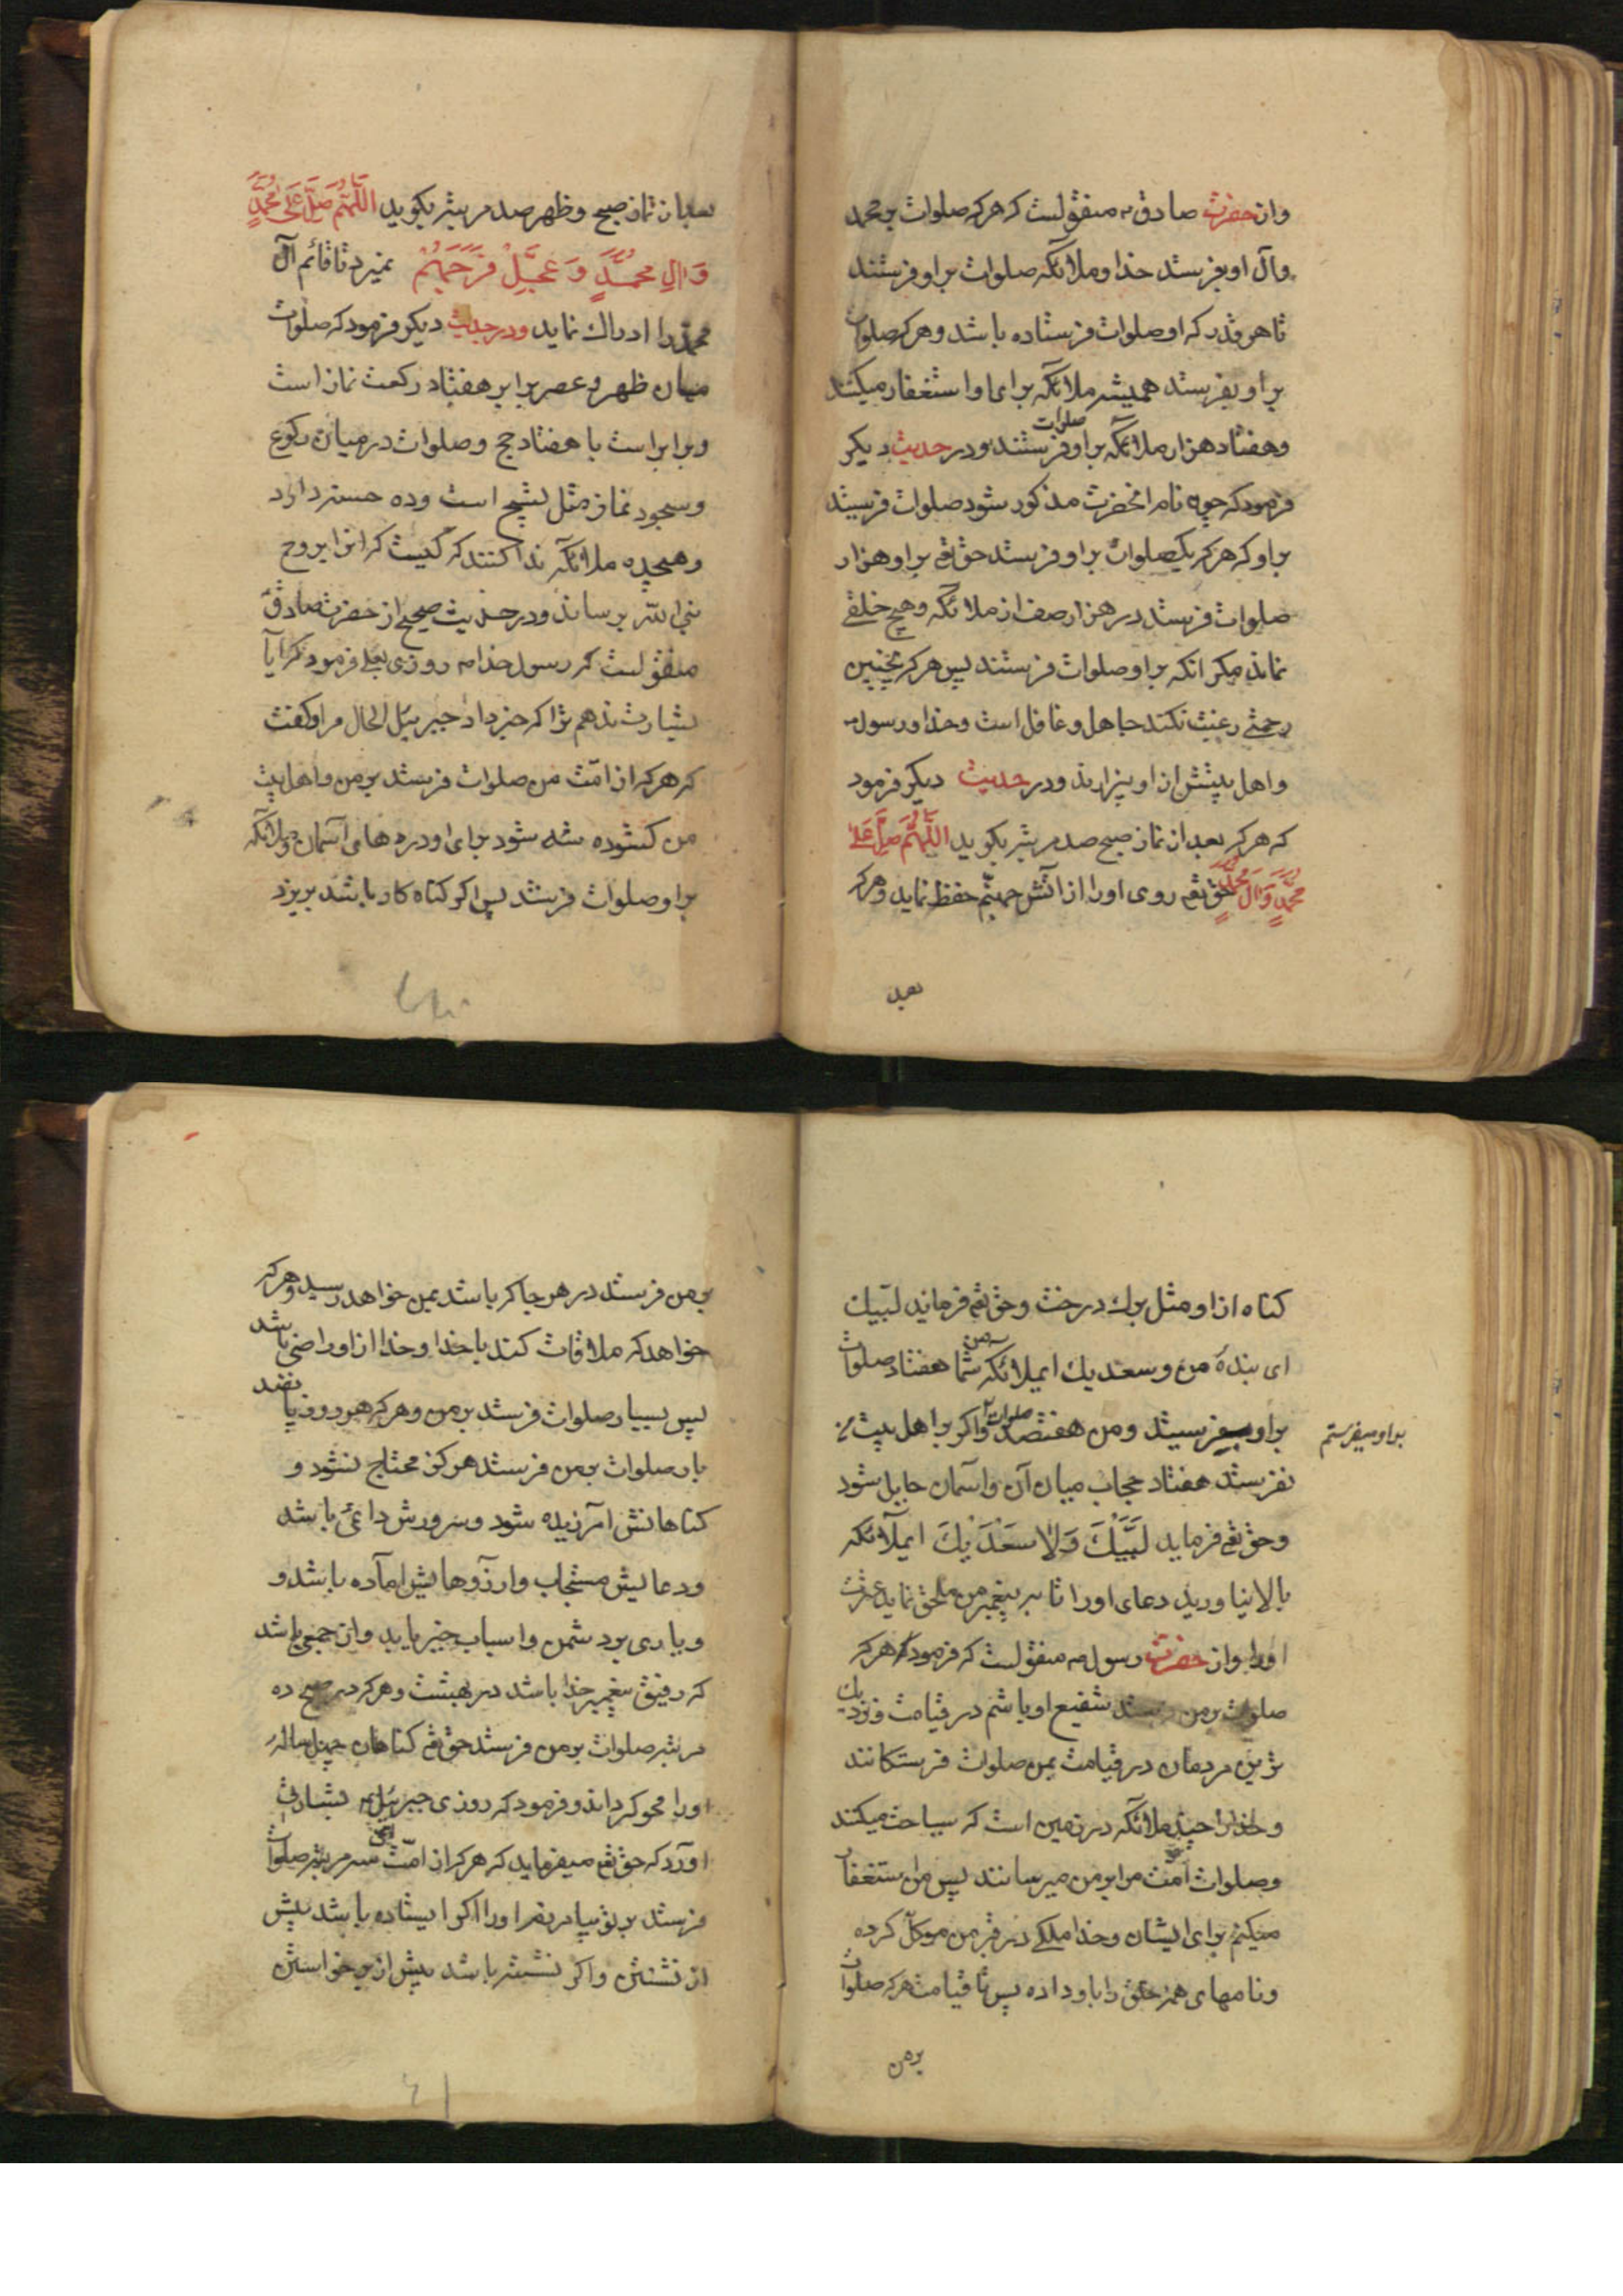 واز حضرت صادق م منقولست که هر که صلوات بر محمد
وآل او بفرستد خدا وملائکه صلوات بر او فرستند
تا هر قدر که او صلوات فرستاده باشد وهر که صلوات
بر او بفرستد همیشه ملائکه برای او استغفار میکنند
وهفتاد هزار ملائکه بر او صلوات فرستند ودر حدیث دیکر
فرمود که چون نام انحضرت مذکور شود صلوات فرستید
بر او که هر که یکصلوات بر او فرستد حق تع بر او هزار
صلوات فرستد در هزار صف از ملائکه وهیچ خلقی
نماند مکر انکه بر او صلوات فرستند پس هر که بچنین
رحمتی رغبت نکند جاهل وغافل است وخدا ورسول
واهل بیتش از او بیزارند ودر حدیث دیکر فرمود
که هر که بعد از نماز صبح صد مرتبه بکوید اللّهُمَّ صَلِّ عَلی
مُحَمَّدٍ وَآلِ مُحَمَّدٍ حق تع روی او را از اتش جهنّم حفظ نماید وهر که
بعد
بعد از نماز صبح وظهر صد مرتبه بکوید اللّهُمَّ صَلِّ عَلی مُحَمَّدٍ
وَآلِ مُحَمَّدٍ وَعَجِّلْ فَرَجَهُمْ نمیرد تا قائم آل
محمّد را ادراك نماید ودر حدیث دیکر فرمود که صلوات
میان ظهر وعصر برابر هفتاد رکعت نماز است
وبرابر است با هفتاد حج وصلوات در میان رکوع
وسجود نماز مثل تسبیح است وده حسنه دارد
وهیجده ملائکه ندا کنند که کیست که انرا بروح
نبی الله برساند ودر حدیث صحیح از حضرت صادق
منقولست که رسول خدا م روزی بعلی فرمود که آیا
بشارت ندهم ترا که خبر داد جبرئیل الحال مرا وکفت
که هر که از امّت من صلوات فرستد بر من واهل بیت
من کشوده شه شود برای او درهای آسمان وملائکه
بر او صلوات فرستد پس اکر کناه کار باشد بریزد
کناه از او مثل برك درخت وحق تع فرماید لبّیك
ای بندۀ من وسعدیك ایملائکه من شما هفتاد صلوات
بر او میفرستید ومن هفتصد صلوات واکر بر اهل بیت من
بر او میفرستم
نفرستد هفتاد حجاب میان آن واسمان حایل شود
وحق تع فرماید لَبَّیْكَ وَلا سَعْدَیْكَ ایملآئکه
بالا نیاورید دعای او را تا بر پیغمبر من ملحق نماید عترت
او را واز حضرت رسول م منقولست که فرمود که هر که
صلوات بر من فرستد شفیع او باشم در قیامت ونزدیك
ترین مردمان در قیامت بمن صلوات فرستکانند
وخدا را چند ملائکه در زمین است که سیاحت میکند
وصلوات امّت مرا بر من میرسانند پس من استغفار
میکنم برای ایشان وخدا ملکی در قبر من موکّل کرده
ونامهای همه خلق را باو داده پس تا قیامت هر که صلوات
بر من
بر من فرستد در هر جا که باشد بمن خواهد رسید وهر که
خواهد که ملاقات کند با خدا وخدا از او راضی باشد
پس بسیار صلوات فرستد بر من وهر که هر روز پانصد
بار صلوات بر من فرستد هرکز محتاج نشود و
کناهانش آمرزیده شود وسرورش دائمی باشد
ودعایش مستجاب وارزوهایش اماده باشد و
ویاری بر دشمن واسباب خیر یابد واز جمعی باشد
که رفیق پیغمبر خدا باشد در بهشت وهر که در صبح ده
مرتبه صلوات بر من فرستد حق تع کناهان چهل ساله
او را محو کرداند وفرمود که روزی جبرئیل بشارتی
اورد که حق تع میفرماید که هر که از امّت سه مرتبه صلوات
فرستد بر تو بیامرزم او را اکر ایستاده باشد پیش
از نشستن واکر نشسته باشد پیش از برخواستن